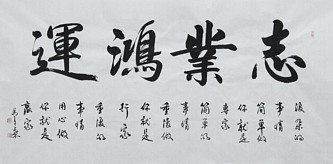 志業鴻運
復杂的
事情
簡單做
你就是
專家
簡單的
事情
重復做
你就是
行家
重復的
事情
用心做
你就是
贏家